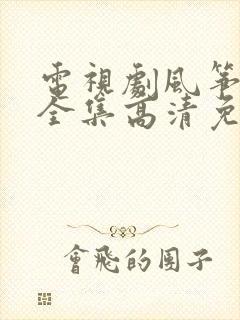 電視劇風箏
全集高清免
會飛的團子